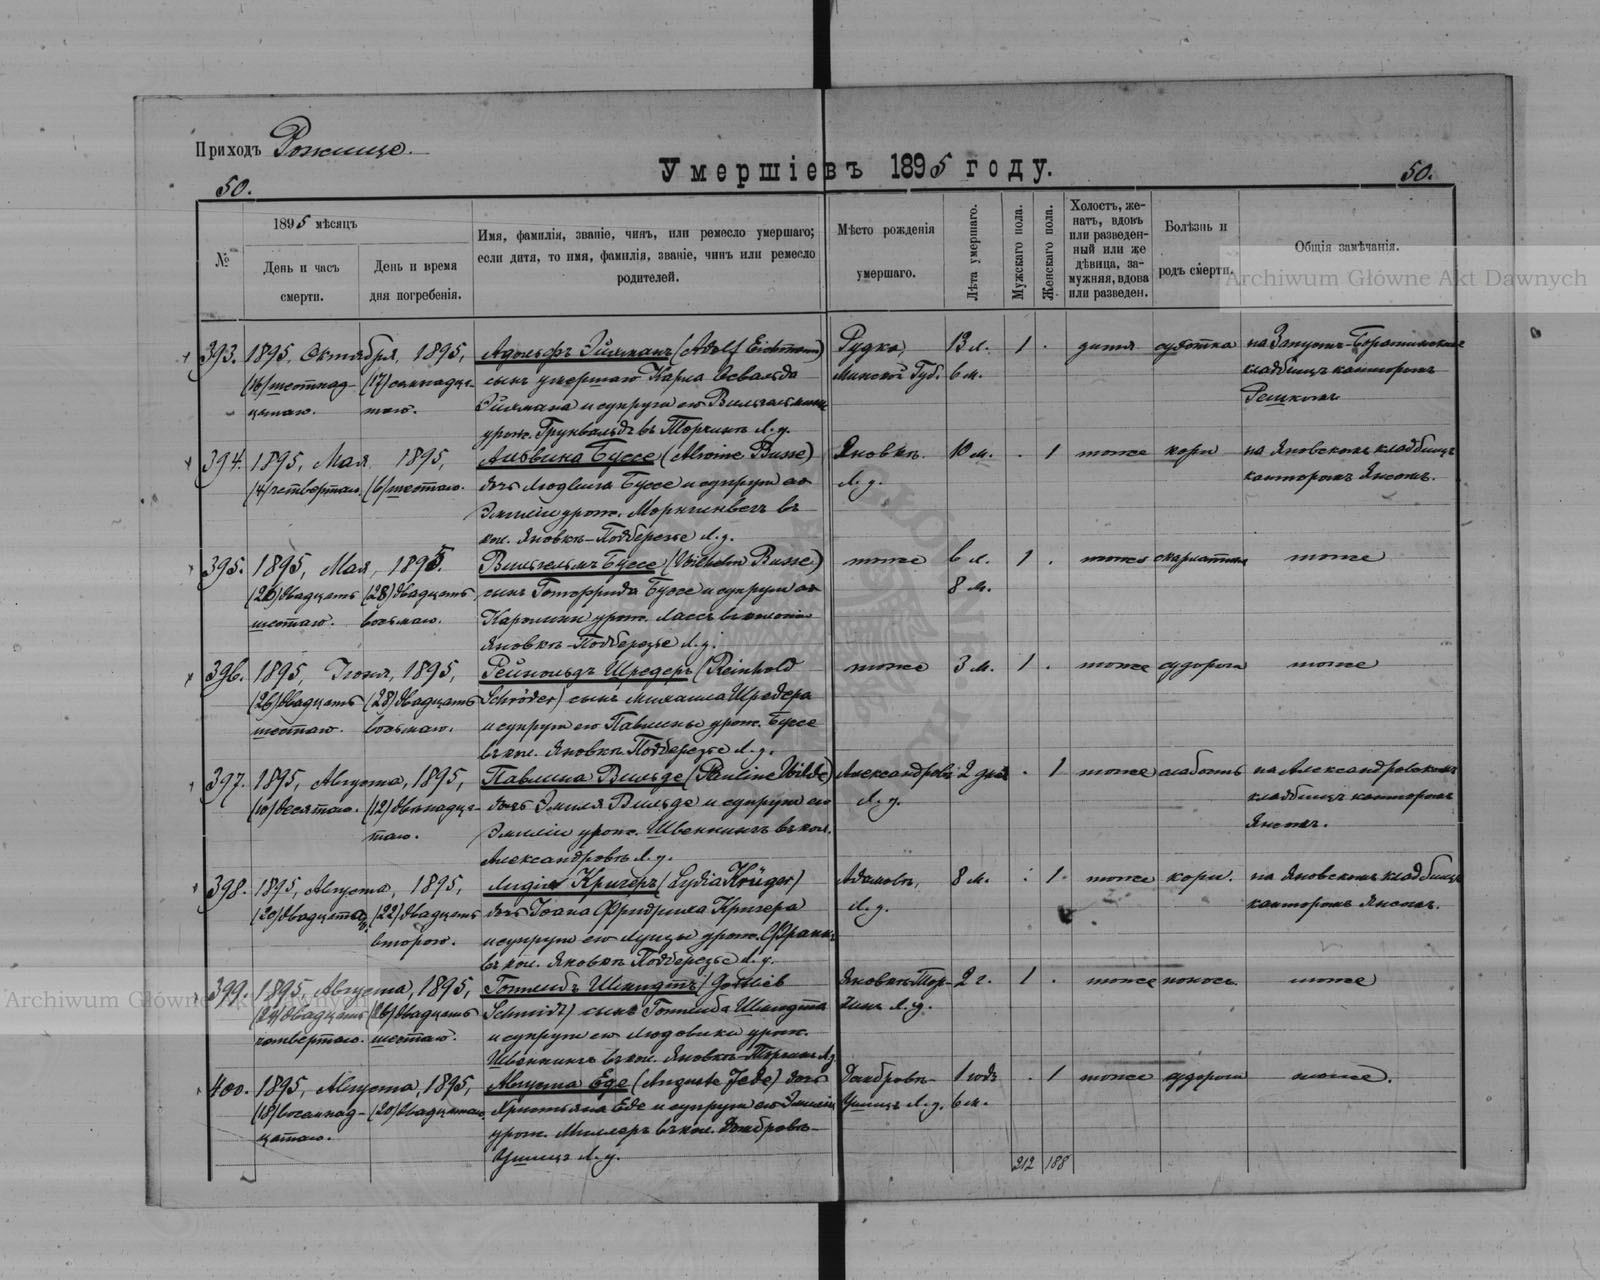 Приходъ Рожище.
Умершіе въ 1895 году.
50.
50.
№
1895 мѣсяцъ
День и часъ
смерти.
День и время
дня погребенія.
Имя, фамилія, званіе, чинъ, или ремесло умершаго;
если дитя, то имя, фамилія, званіе, чинъ или ремесло
родителей.
Мѣсто рожденія
умершаго.
Лѣта умершаго.
Мужскаго пола.
Женскаго пола.
Холостъ, же-
натъ, вдовъ
или разведен-
ный или же
дѣвица, за-
мужняя, вдова
или разведен.
Болѣзнь и
родъ смерти.
Общія замѣчанія.
Archiwum Główne Akt Dawnych
393. 1895, Октября, 1895, Адольфъ Эйхманъ (Adolf Eichmann) Рудка, 13 л. 1 . дитя сухотка на
(16) шестнад- (17) семнадца- сынъ умершаго Карла Освальда Минской Губ. 6 м. кладбищѣ канторомъ
цатаго. таго. Эйхмана и супруги его Вильгельмины
урож. Грунвальдъ въ Торчинъ Л. у.
394. 1895, Мая 1895, Альвина Буссе (Alwine Busse) Яновкѣ 10 м. . 1 тоже кори на Яновскомъ кладбищѣ
(4) четвертаго. (6) шестаго. дочь Людвига Буссе и супруги его Л. у. канторомъ Янсомъ.
Эмиліи урож. въ
кол. Яновкѣ-Подберезье Л. у.
395. 1895, Мая, 1895. Вильгельмъ Буссе (Wilhelm Busse) тоже 6 л. 1 . тоже скарлатина тоже
(26) двадцать (28) двадцать сынъ Готфрида Буссе и супруги его 8 м.
шестаго. восьмаго. Каролины урож. Лассъ въ колоніи
Яновкѣ-Подберезье Л. у.
396. 1895, Іюня, 1895, Рейнольдъ Шредеръ (Reinhold тоже 3 м. 1 . тоже судорога тоже
(26) двадцать (28) двадцать Schröder) сынъ Михаила Шредера
шестаго. восьмаго. и супруги его Павлины урож. Буссе
въ кол. Яновкѣ Подберезье Л. у.
397. 1895, Августа, 1895, Павлина Вильде (Pauline Wilde) Александровкѣ 2 дня . 1 тоже слабость на Александровскомъ
(10) десятаго. (12) двѣнадца- дочь Эмиля Вильде и супруги его Л. у. кладбищѣ канторомъ
таго. Эмиліи урож. Швеннингъ въ кол. Янсомъ.
Александровкѣ Л. у.
398. 1895, Августа, 1895, Лидія Кригеръ (Lydia Krüger) Адамовкѣ, 8 м. . 1 . тоже кори. на Яновскомъ кладбищѣ
(20) двадцатаго, (22) двадцать дочь Іоана Фридриха Кригера Л. у. канторомъ Янсомъ.
второго. и супруги его Луизы урож. Франкъ
въ кол. Яновкѣ Подберезье Л. у.
399. 1895, Августа, 1895, Готлибъ Шмидтъ (Gottlieb Яновкѣ-Тор- 2 г. 1 . тоже поносъ тоже
(24) двадцать (26) двадцать Schmidt) сынъ Готлиба Шмидта чинъ Л. у.
четвертаго. шестаго. и супруги его Людовики урож.
Швеннингъ въ кол. Яновкѣ-Торчинъ Л. у.
Archiwum Główne Akt Dawnych
400. 1895, Августа, 1895, Августа Еде (Auguste Jede) дочь Домбровъ- 1 годъ . 1 тоже судорога тоже.
(18) восемнад- (20) двадцатаго. Христьяна Еде и супруги его Эмиліи Л. у. 6 м.
цатаго. урож. Миллеръ въ кол. Домбровъ-
Л. у.
212 188